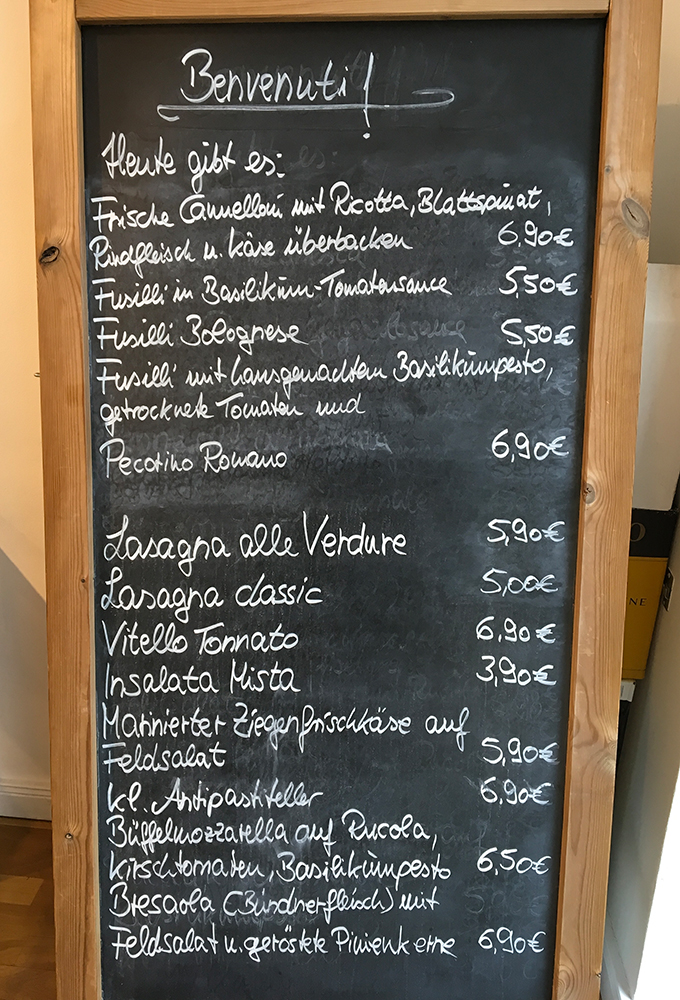 Benvenuti!
Heute gibt es:
Frische Cannelloni mit Ricotta, Blattspinat,
Rindfleisch u. Käse überbacken 6,90€
Fusilli in Basilikum-Tomatensauce 5,50€
Fusilli Bolognese 5,50€
Fusilli mit hausgemachtem Basilikumpesto,
getrocknete Tomaten und
Pecorino Romano 6,90€
Lasagna alle Verdure 5,90€
Lasagna classic 5,00€
Vitello Tonnato 6,90€
Insalata Mista 3,90€
Marinierter Ziegenfrischkäse auf
Feldsalat 5,90€
kl. Antipastiteller 6,90€
Büffelmozzarella auf Rucola,
Kirschtomaten, Basilikumpesto 6,50€
Bresaola (Bündnerfleisch) mit
Feldsalat u. geröstete Pinienkerne 6,90€